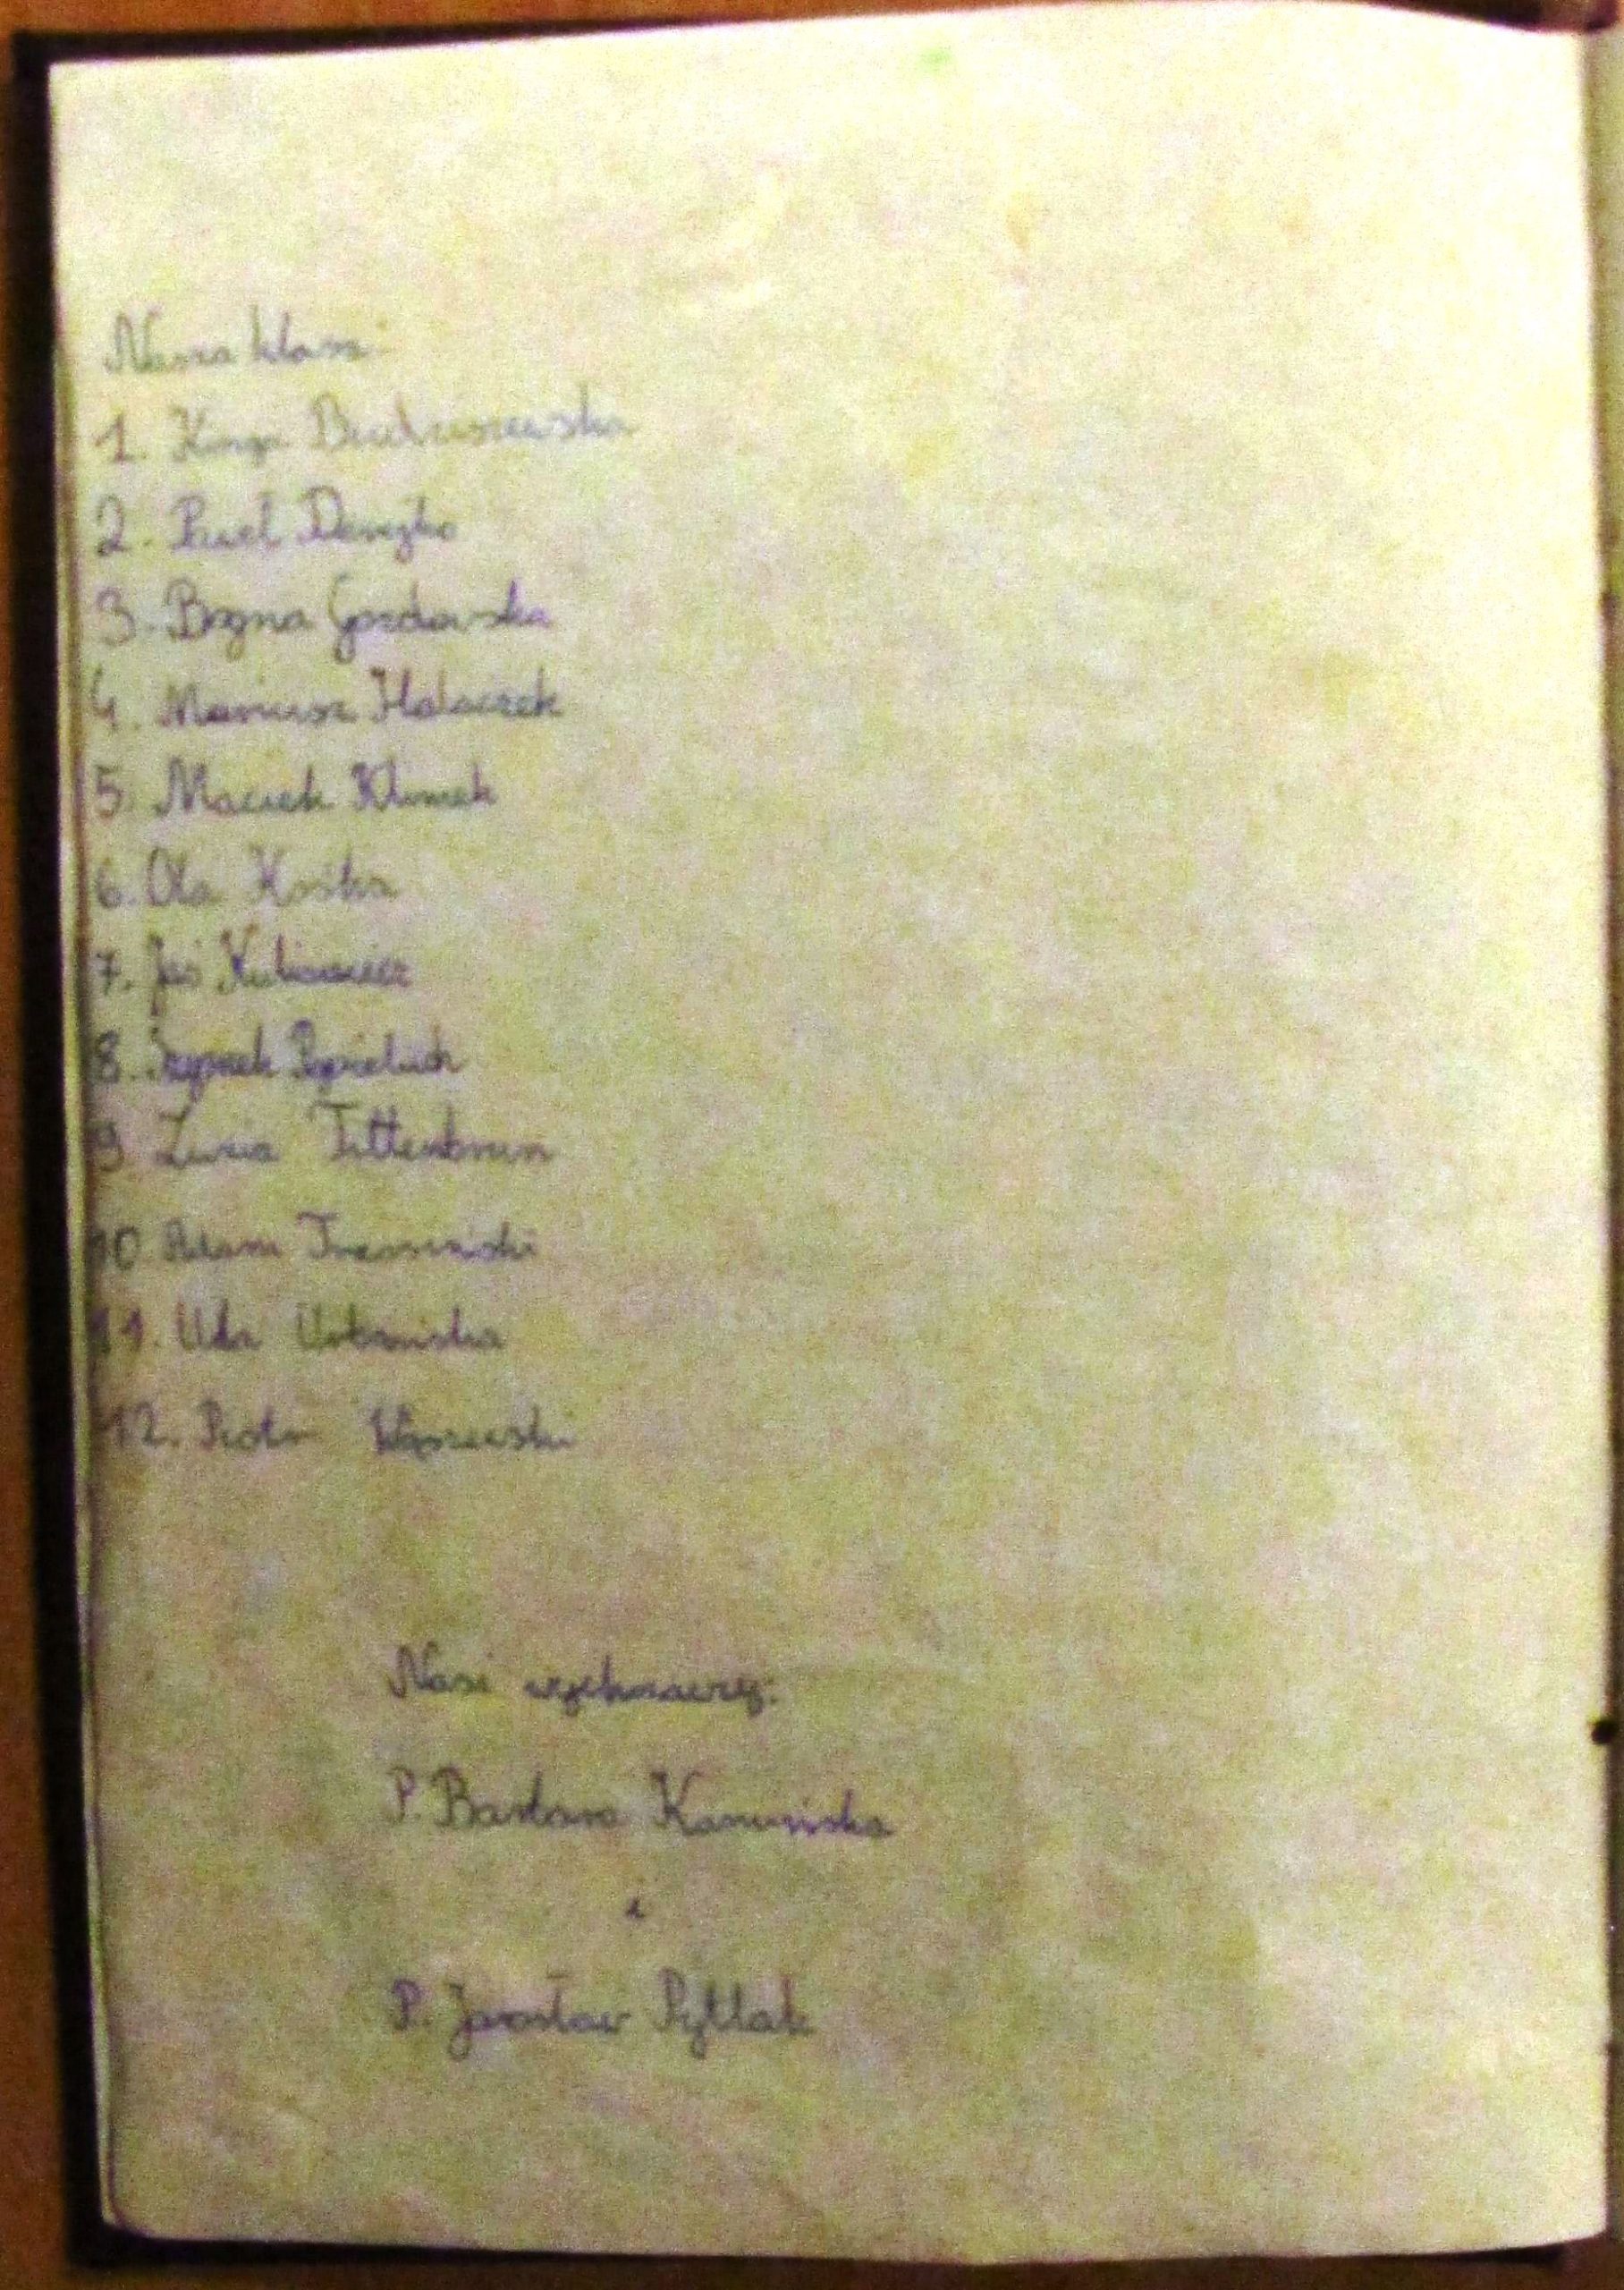 Nasza klasa:
1. Kinga
2. Paweł
3. Bogna Gozdowska
4. Mariusz Hałaczek
5. Maciek Klimek
6. Ola Kostka
7. Jaś
8. Szymek
9. Zuzia Tittenbrun
10. Adam
11. Ula Urbańska
12. Piotr
Nasi wychowawcy:
P. Barbara Kamińska
i
P. Jarosław Pytlak